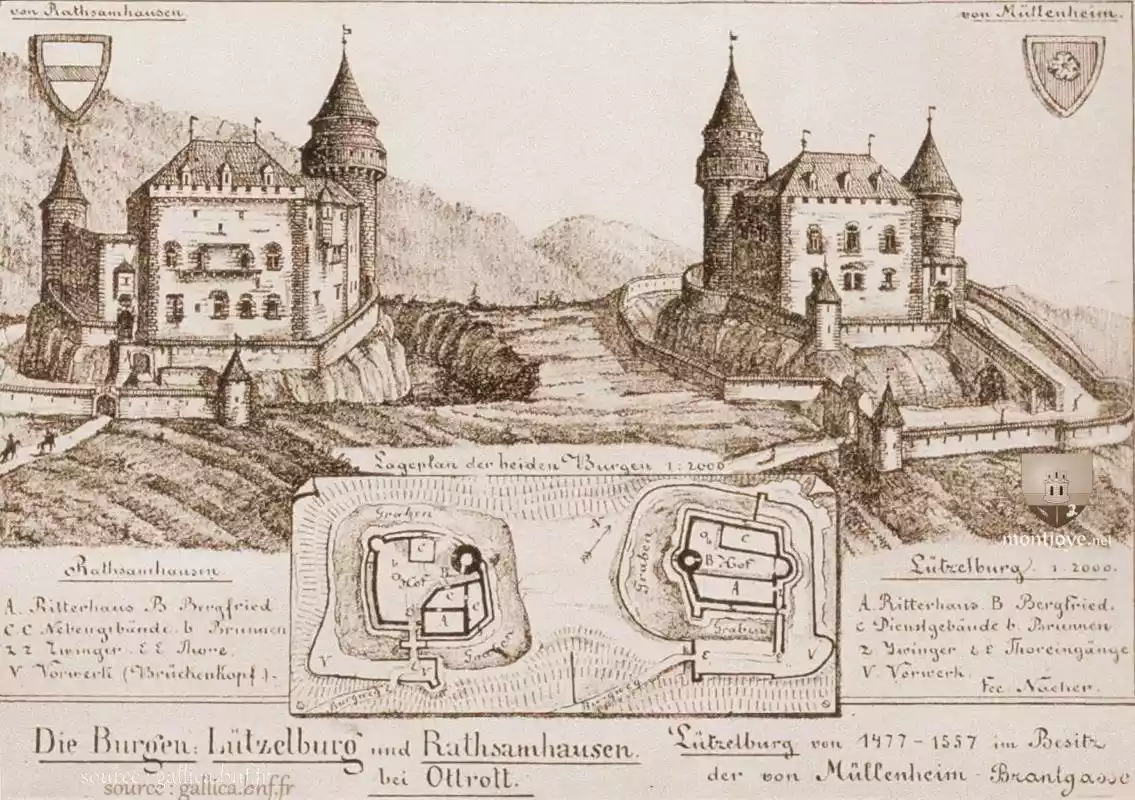 von Rathsamhausen
von Müllenheim.
Lageplan der beiden Burgen 1:2000
Graben
N
C
b
Hof
B
C
C
A
Graben
V
Burgweg
Graben
C
B Hof
A
Graben
E
E
V
Burgweg
montjoye.net
Rathsamhausen
A. Ritterhaus B Bergfried
C.C Nebengebünde. b Brunnen
z z Zwinger. E E Thore.
V Vorwerk (Brückenkopf).
Lützelburg 1:2000.
A. Ritterhaus. B Bergfried.
c Dienstgebäude b. Brunnen
z Zwinger E E Thoreingänge
V. Vorwerk.
Fec. Nacher.
Die Burgen: Lützelburg und Rathsamhausen.
bei Ottrott.
Lützelburg von 1477-1557 im Besitz
der von Müllenheim-Brantgasse
source : gallica.bnf.fr
source : gallica.bnf.fr